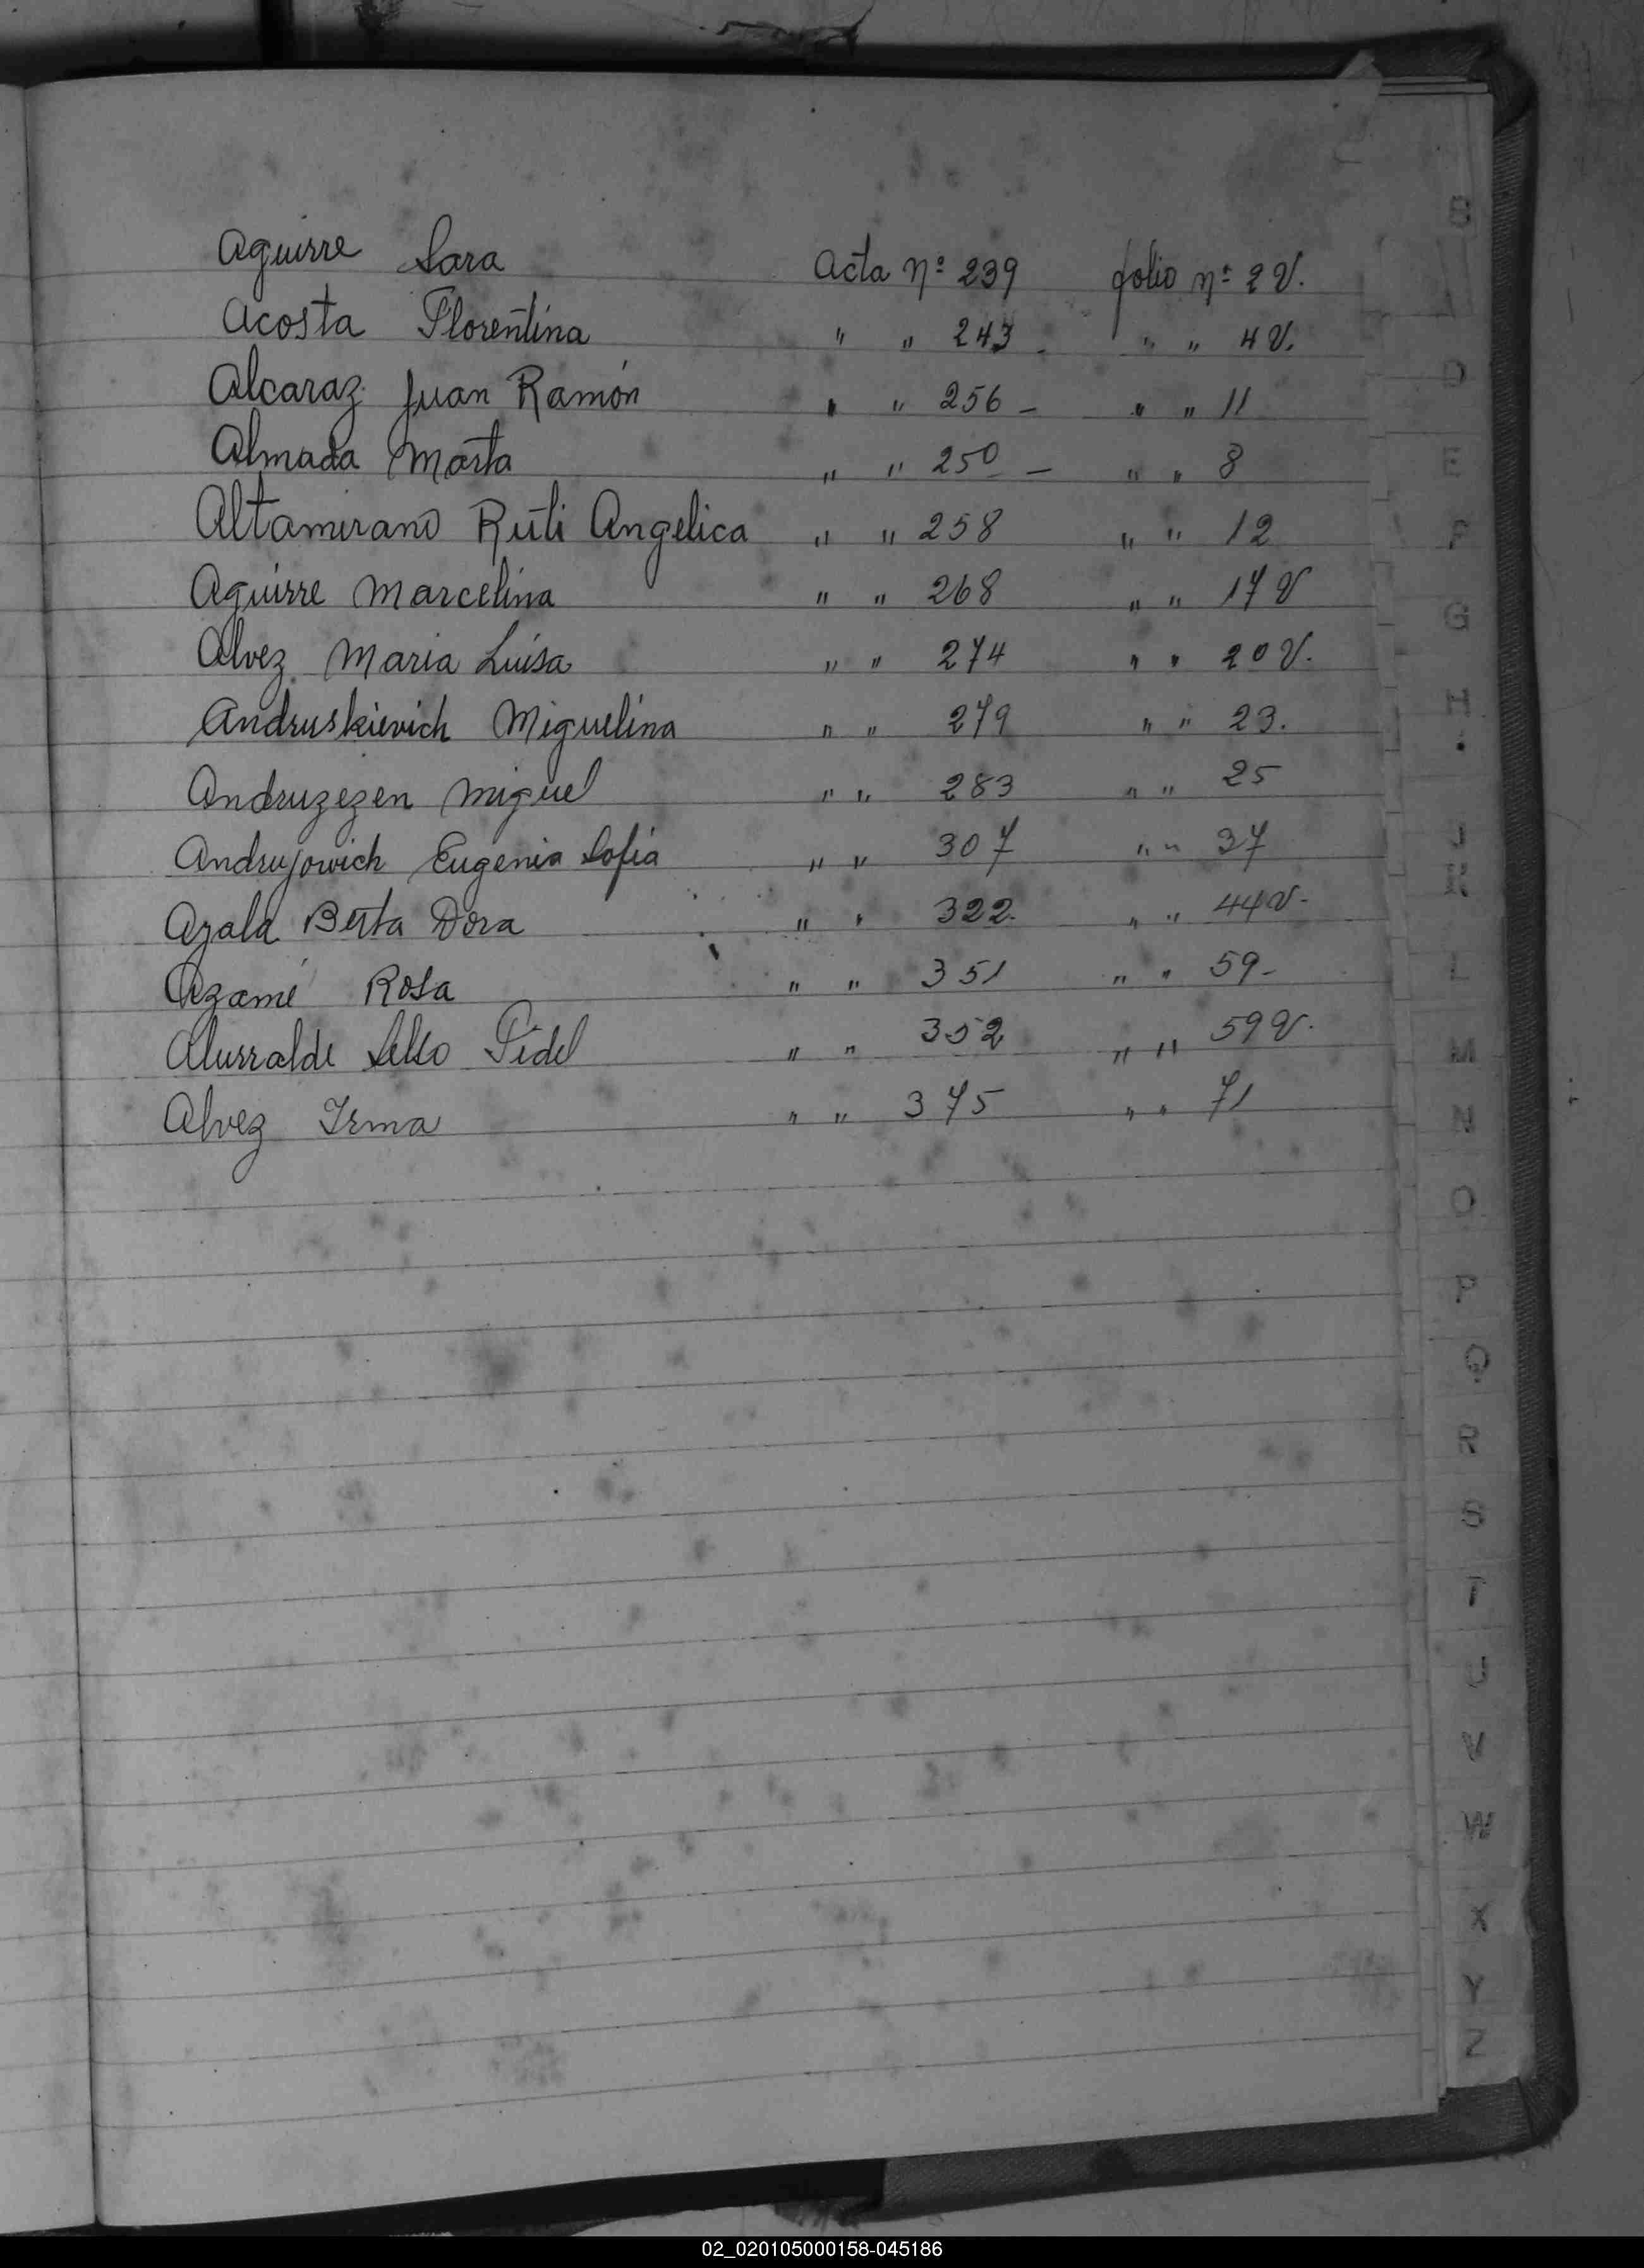 Aguirre Sara Acta nº 239 folio nº 2 V.
Acosta Florentina " " 243 " " 4 V.
Alcaraz Juan Ramón " " 256 - " " 11
Almada Marta " " 250 - " " 8
Altamirano Ruti Angelica " " 258 " " 12
Aguirre Marcelina " " 268 " " 17 V
Alvez Maria Luisa " " 274 " " 20 V.
Andruskievich Miguelina " " 279 " " 23.
Andruzezen Miguel " " 283 " " 25
Andrujowich Eugenia Sofia " " 307 " " 37
Berta Dora " " 322. " " 44 V-
Azamé Rosa " " 351 " " 59-
Alurralde Fidel " " 352 " " 59 V.
Alvez Irma " " 375 " " 71
B
D
E
F
G
H
J
K
L
M
N
O
P
Q
R
S
T
U
V
W
X
Y
Z
02_020105000158-045186